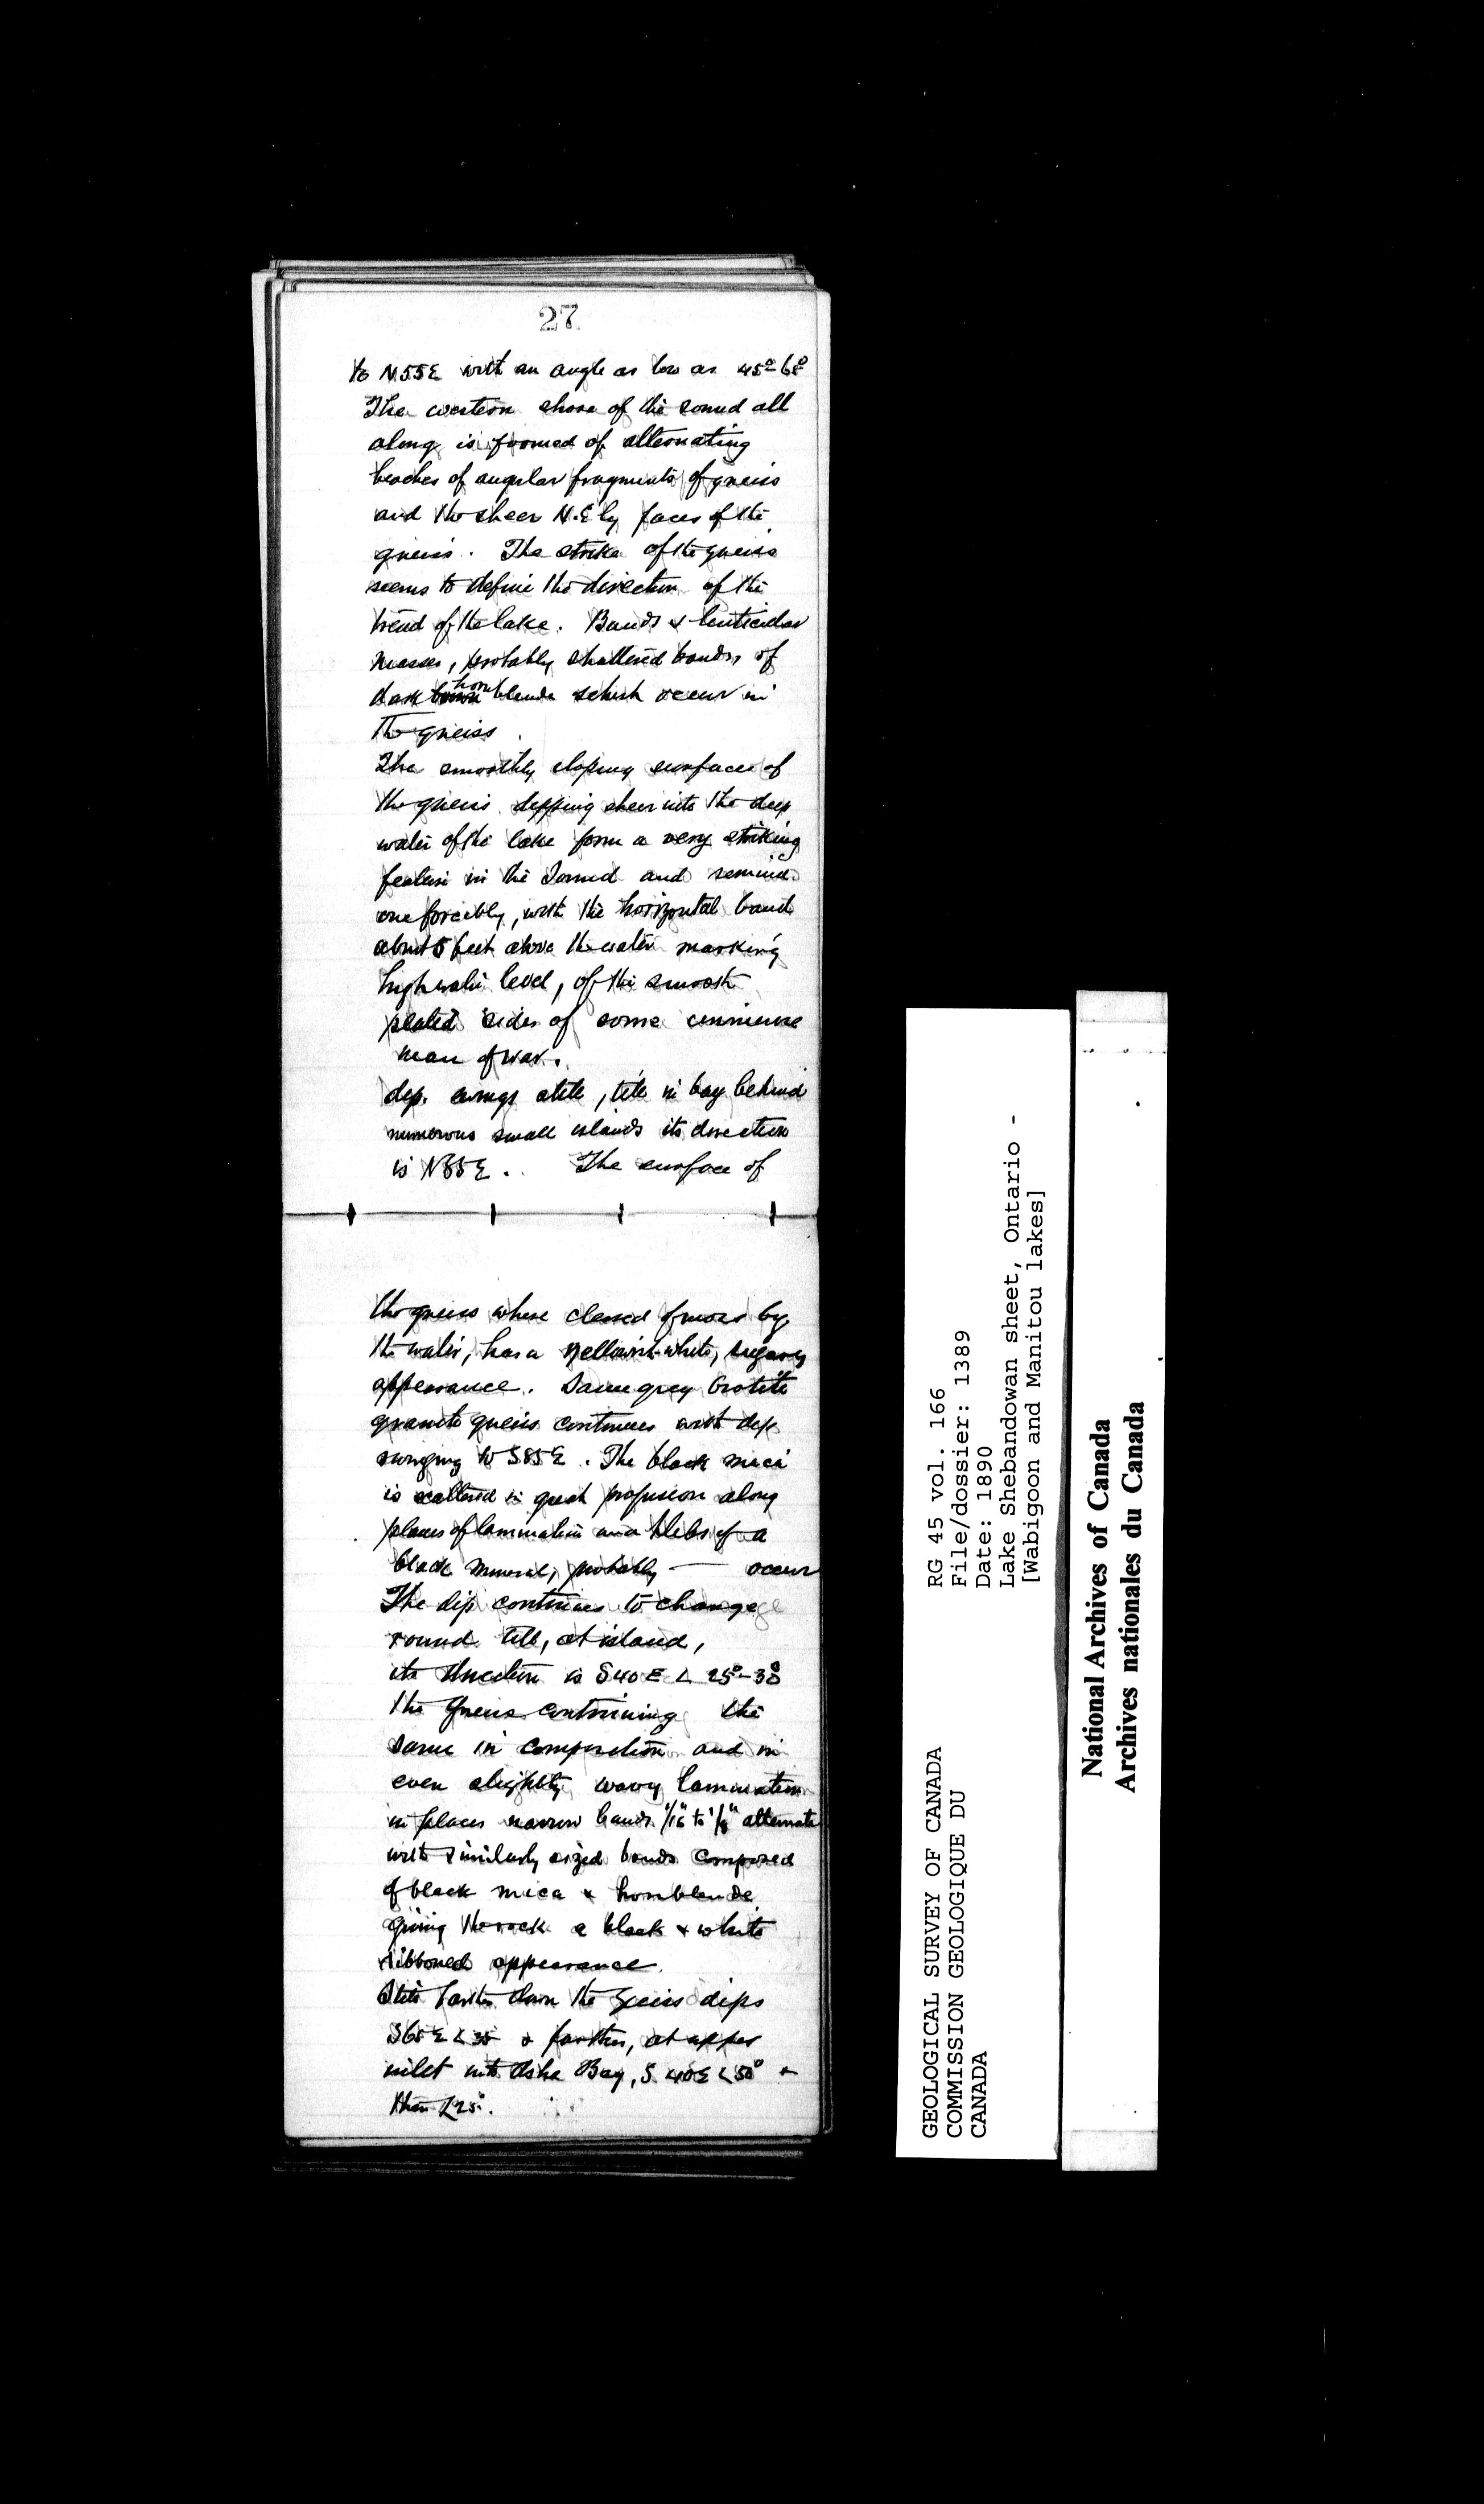 27
to N55E with an angle as low as 45°-65°
The western shore of the sound all
along is formed of alternating
beaches of angular fragments of gneiss
and the sheer N.Ely faces of the
gneiss. The strike of the gneiss
seems to define the direction of the
trend of the lake. Bands & lenticular
masses, probably shattered bands, of
dark hornblende schist occur in
the gneiss.
The smoothly sloping surfaces of
the gneiss dipping sheer into the deep
water of the lake form a very striking
feature in the Sound and remind
one forcibly, with the horizontal band
about 5 feet above the water marking
high water level, of the smooth
plated sides of some immense
man of war.
dip. swings a little, till in bay behind
numerous small islands its direction
is N85E. The surface of
the gneiss where cleaned of moss by
the water, has a yellowish-white, sugary
appearance. Same grey biotite
granite gneiss continues with dip
swinging to S85E. The black mica
is scattered in great profusion along
planes of lamination and blebs of a
black mineral, probably — occur
The dip continues to change
round till, at island,
its direction is S40E ∠ 25°-30°
the gneiss continuing the
same in composition and in
even slightly wavy lamination
in places narrow bands 1/16" to 1/8" alternate
with similarly sized bands composed
of black mica & hornblende
giving the rock a black & white
ribboned appearance.
little farther down the gneiss dips
S65E ∠ 35 & farther, at upper
inlet into Bay, S.40E ∠ 50° &
then ∠ 25°.
RG 45 vol. 166
File/dossier: 1389
Date: 1890
Lake Shebandowan sheet, Ontario -
[Wabigoon and Manitou lakes]
GEOLOGICAL SURVEY OF CANADA
COMMISSION GEOLOGIQUE DU
CANADA
National Archives of Canada
Archives nationales du Canada